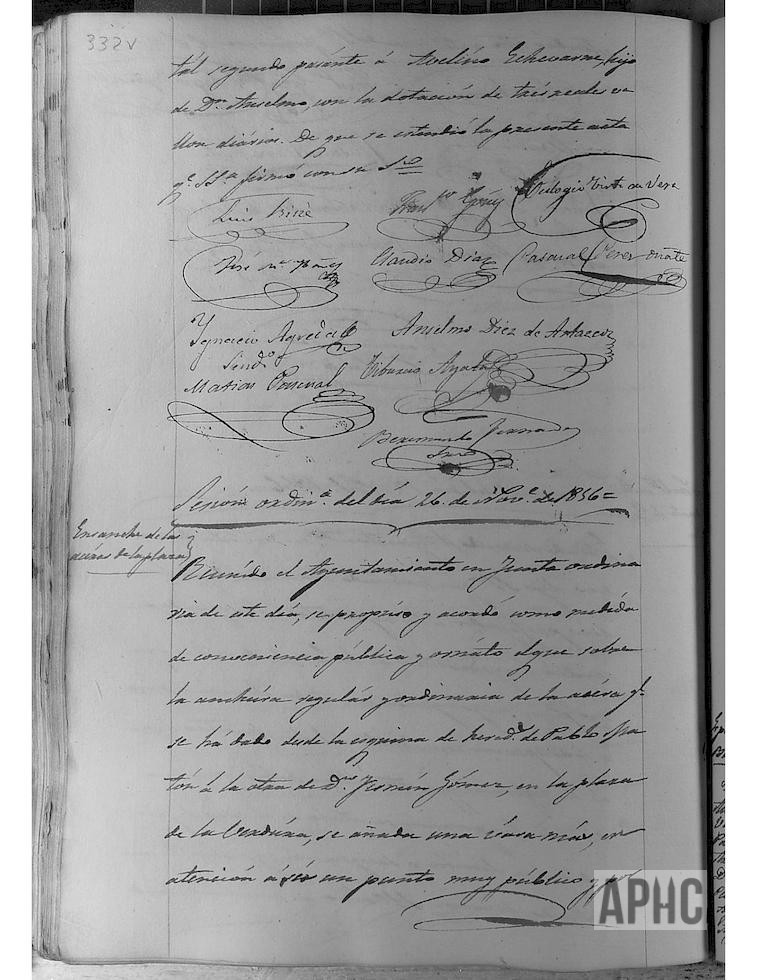 332v
tál segundo pasánte á Avelino Echevarne, hijo
de Dn. Anselmo, con la dotación de trés reales ve
llon diários. De que se estendió la presente acta
qe. SSa. firmó con su Sro.
Luis
Franco.
Eulogio de Vera
José Ma.
Claudio Diaz
Pascual Perez Oñate
Ygnacio Agreda
Sindo.
Anselmo Diez de
Matias Pascual
Tiburcio Ayala
Beremundo Fernandez
Srio
Sesión ordina. del día 26. de Nove. de 1856=
Ensanche de las
acéras de la plaza
Reunído el Ayuntamiento en Junta ordina
ria de este día, se propuso y acordó como medída
de conveniencia pública y ornáto el que sobre
la anchúra regulár y ordinaria de la acéra qe.
se há dado desde la esquina de heredos. de Pablo
tón á la otra de Dn. Fermin Gómez, en la plaza
de la Verdúra, se añada una vára más, en
atención á sér un punto muy público y por
APHC